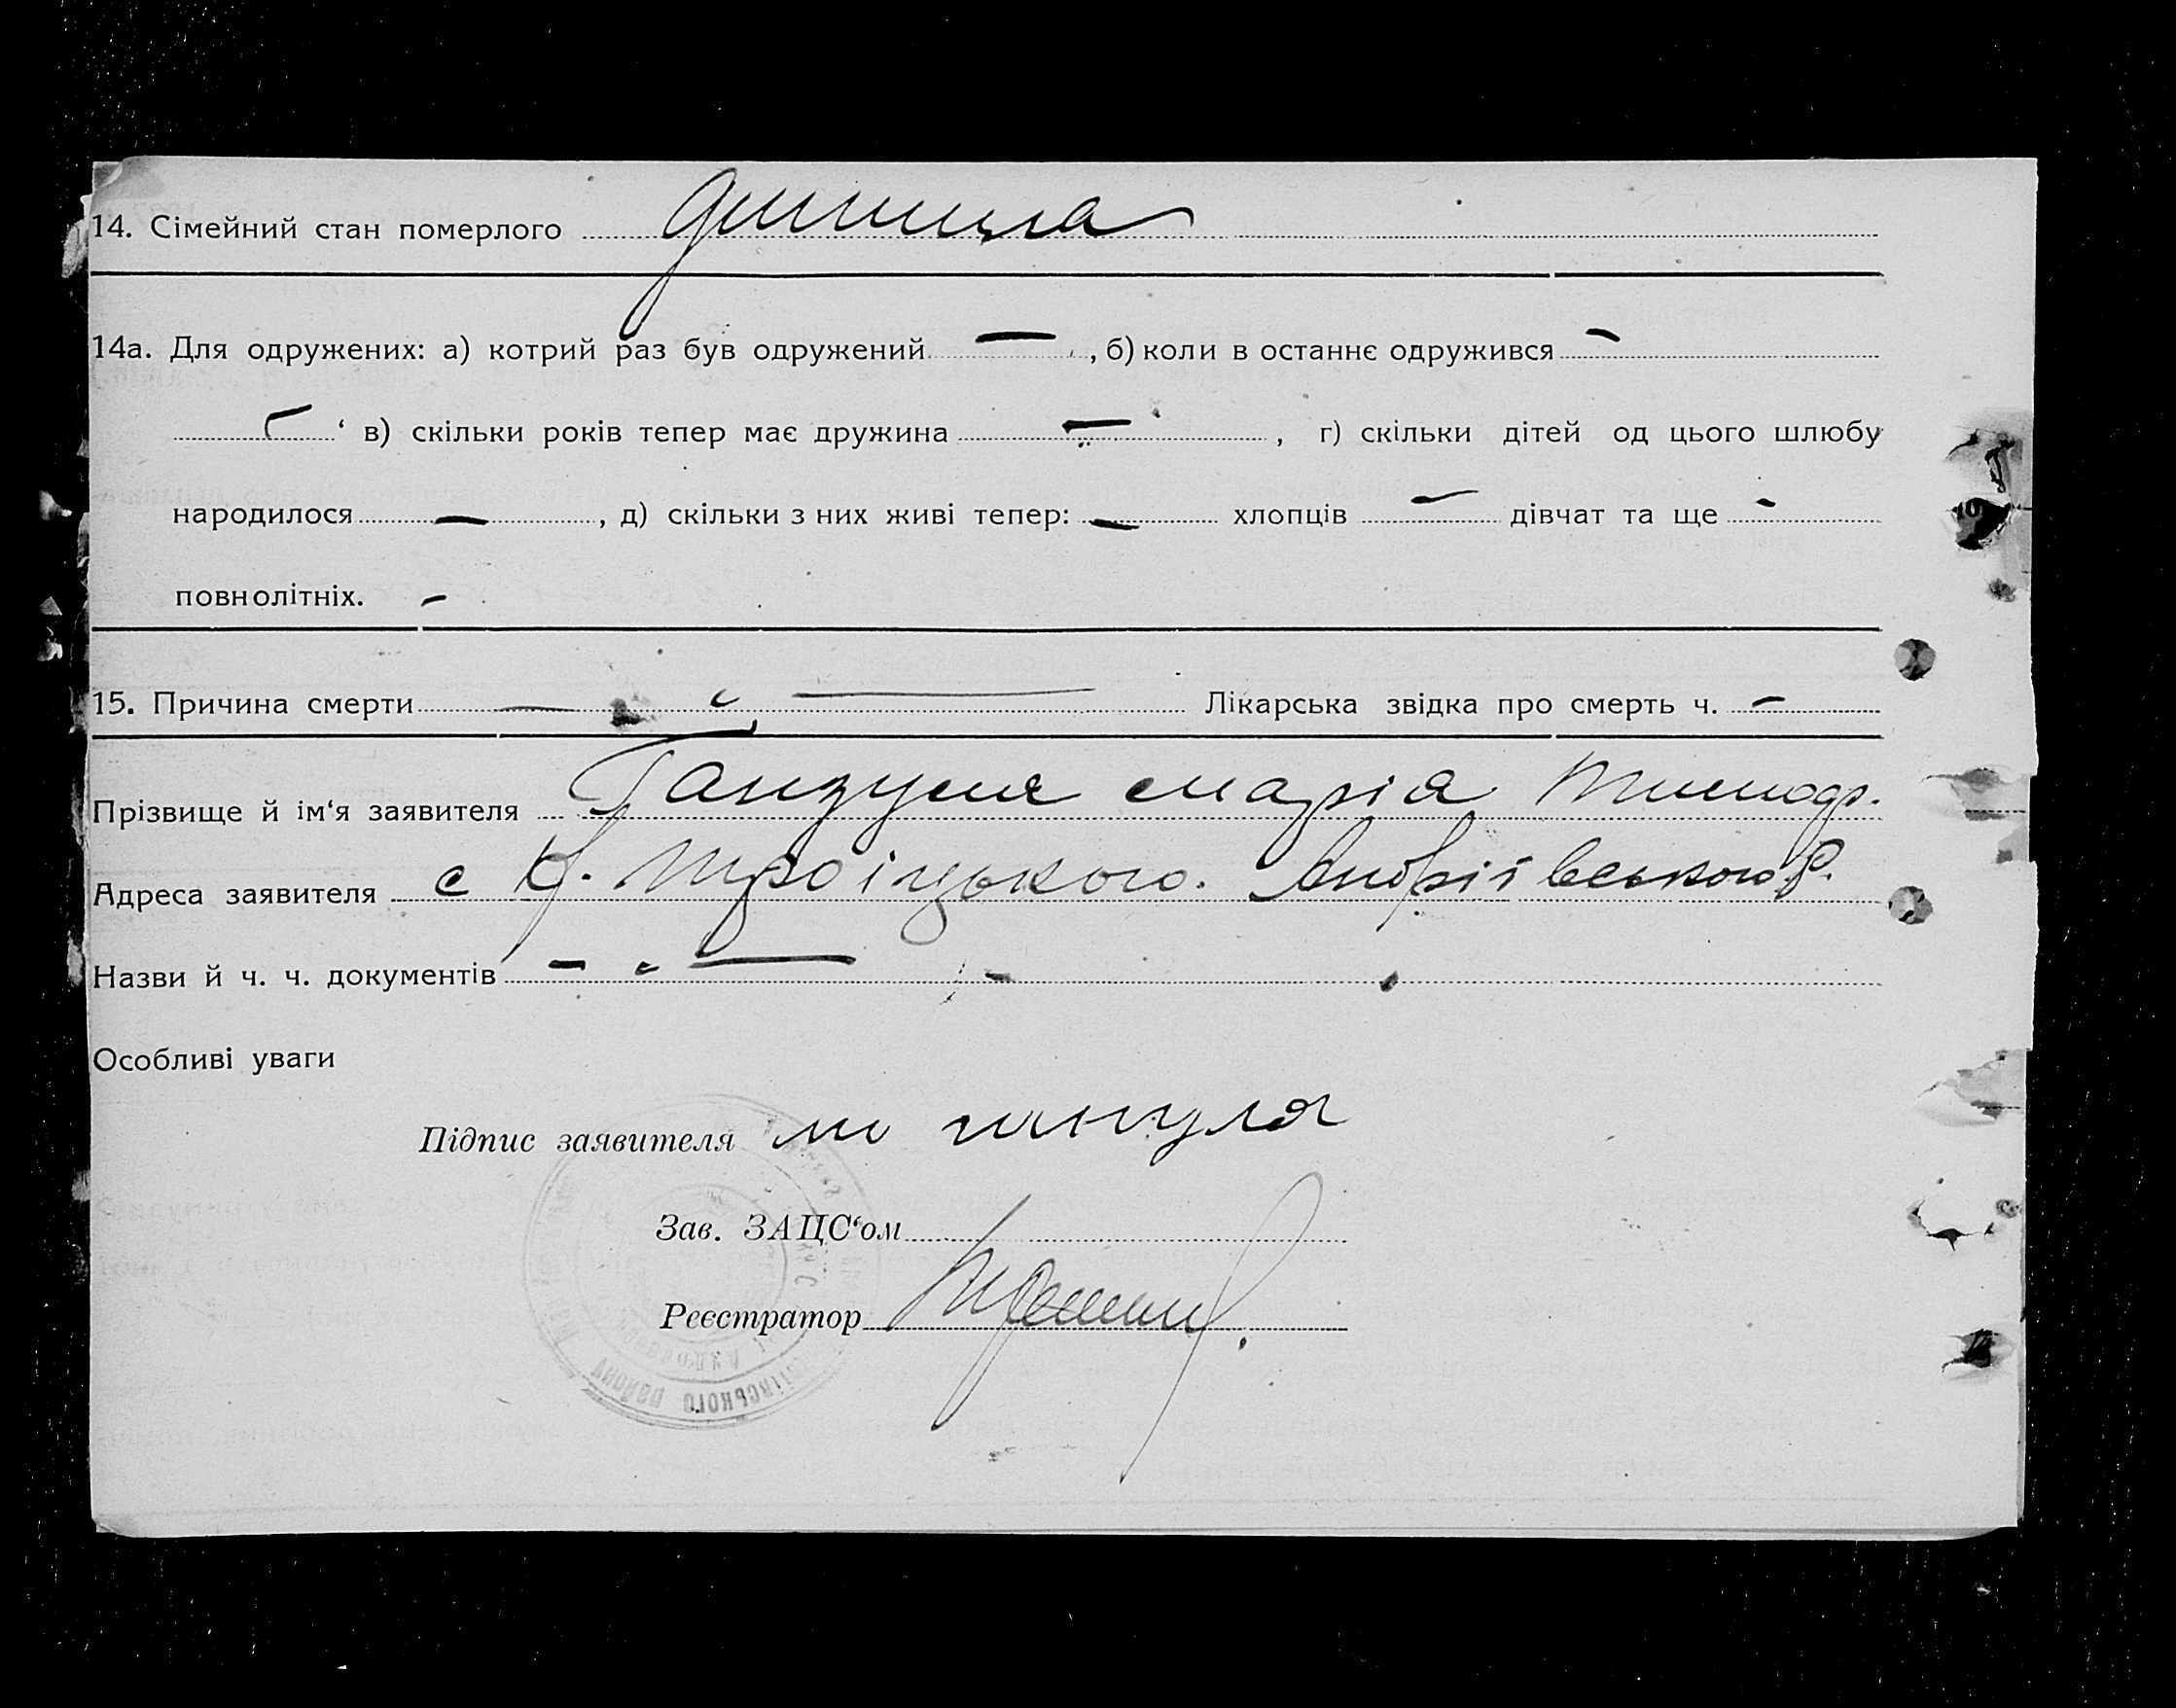 14. Сімейний стан померлого дитина
14а. Для одружених: а) котрий раз був одружений — , б) коли в останнє одружився —
— ‘ в) скільки років тепер має дружина — , г) скільки дітей од цього шлюбу
народилося — , д) скільки з них живі тепер: — хлопців — дівчат та ще —
повнолітніх. —
15. Причина смерти — " — Лікарська звідка про смерть ч. —
Прізвище й ім‘я заявителя Ганзуля марія Тимоф.
Адреса заявителя с Н. Троіцького. Андріївського р.
Назви й ч. ч. документів — " — -
Особливі уваги
Підпис заявителя
Зав. ЗАЦС‘ом
Реєстратор
ського району